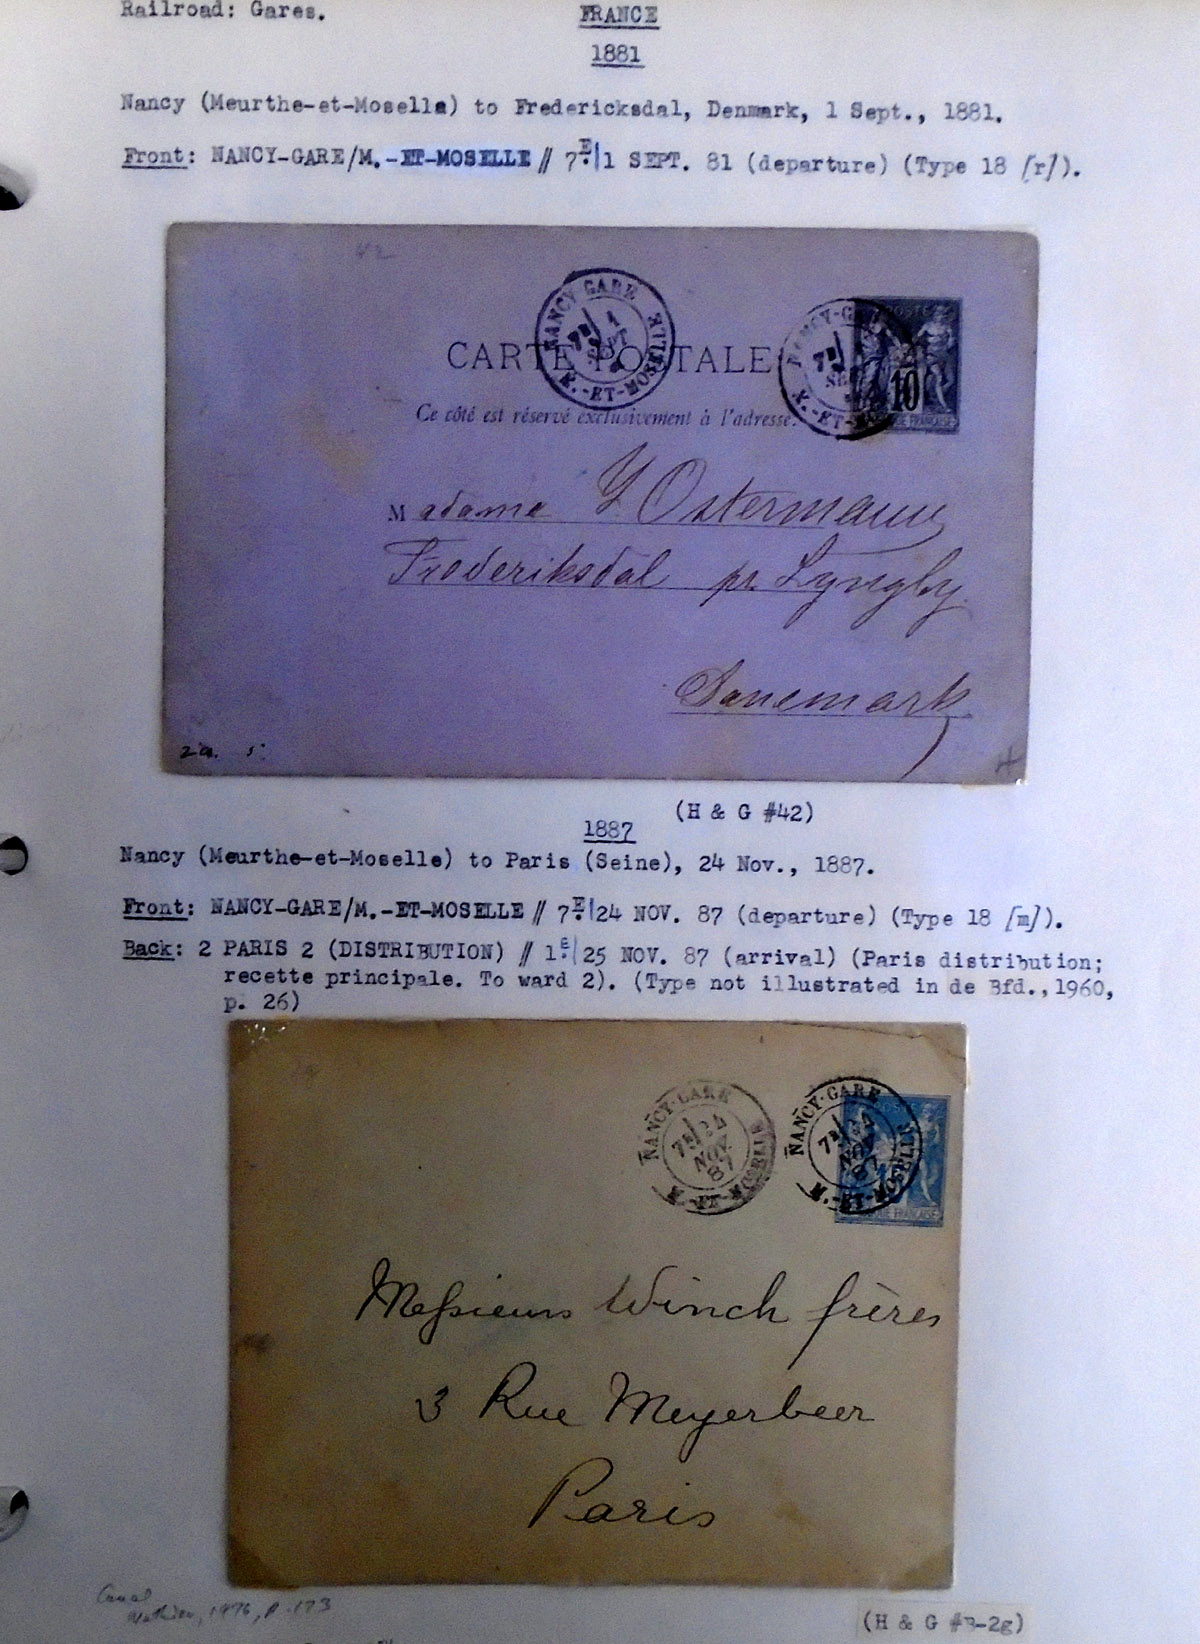 Railroad: Gares.
FRANCE
1881
Nancy (Meurthe-et-Moselle) to Fredericksdal, Denmark, 1 Sept., 1881.
Front: NANCY-GARE/M.-ET-MOSELLE // 7E.|1 SEPT. 81 (departure) (Type 18 [r]).
NANCY-GARE
7E 1
SEPT
M.-ET-MOSELLE
NANCY-G
7E
SE
M.-ET-M
POSTE
10
QUE FRANÇAISE
CARTE POSTALE
Ce côté est réservé exclusivement à l'adresse.
Madame Y Ostermann
Frederiksdal pr. Lyngby.
Danemark
(H & G #42)
1887
Nancy (Meurthe-et-Moselle) to Paris (Seine), 24 Nov., 1887.
Front: NANCY-GARE/M.-ET-MOSELLE // 7E.|24 NOV. 87 (departure) (Type 18 [m]).
Back: 2 PARIS 2 (DISTRIBUTION) // 1E.|25 NOV. 87 (arrival) (Paris distribution;
recette principale. To ward 2). (Type not illustrated in de Bfd., 1960,
p. 26)
NANCY-GARE
7E 24
NOV
87
M.-ET-MOSELLE
NANCY-GARE
7E 24
NOV
87
M.-ET-MOSELLE
QUE FRANÇAISE
Messieurs Winch frères
3 Rue Meyerbeer
Paris
1976, p. 173
(H & G #B-2g)